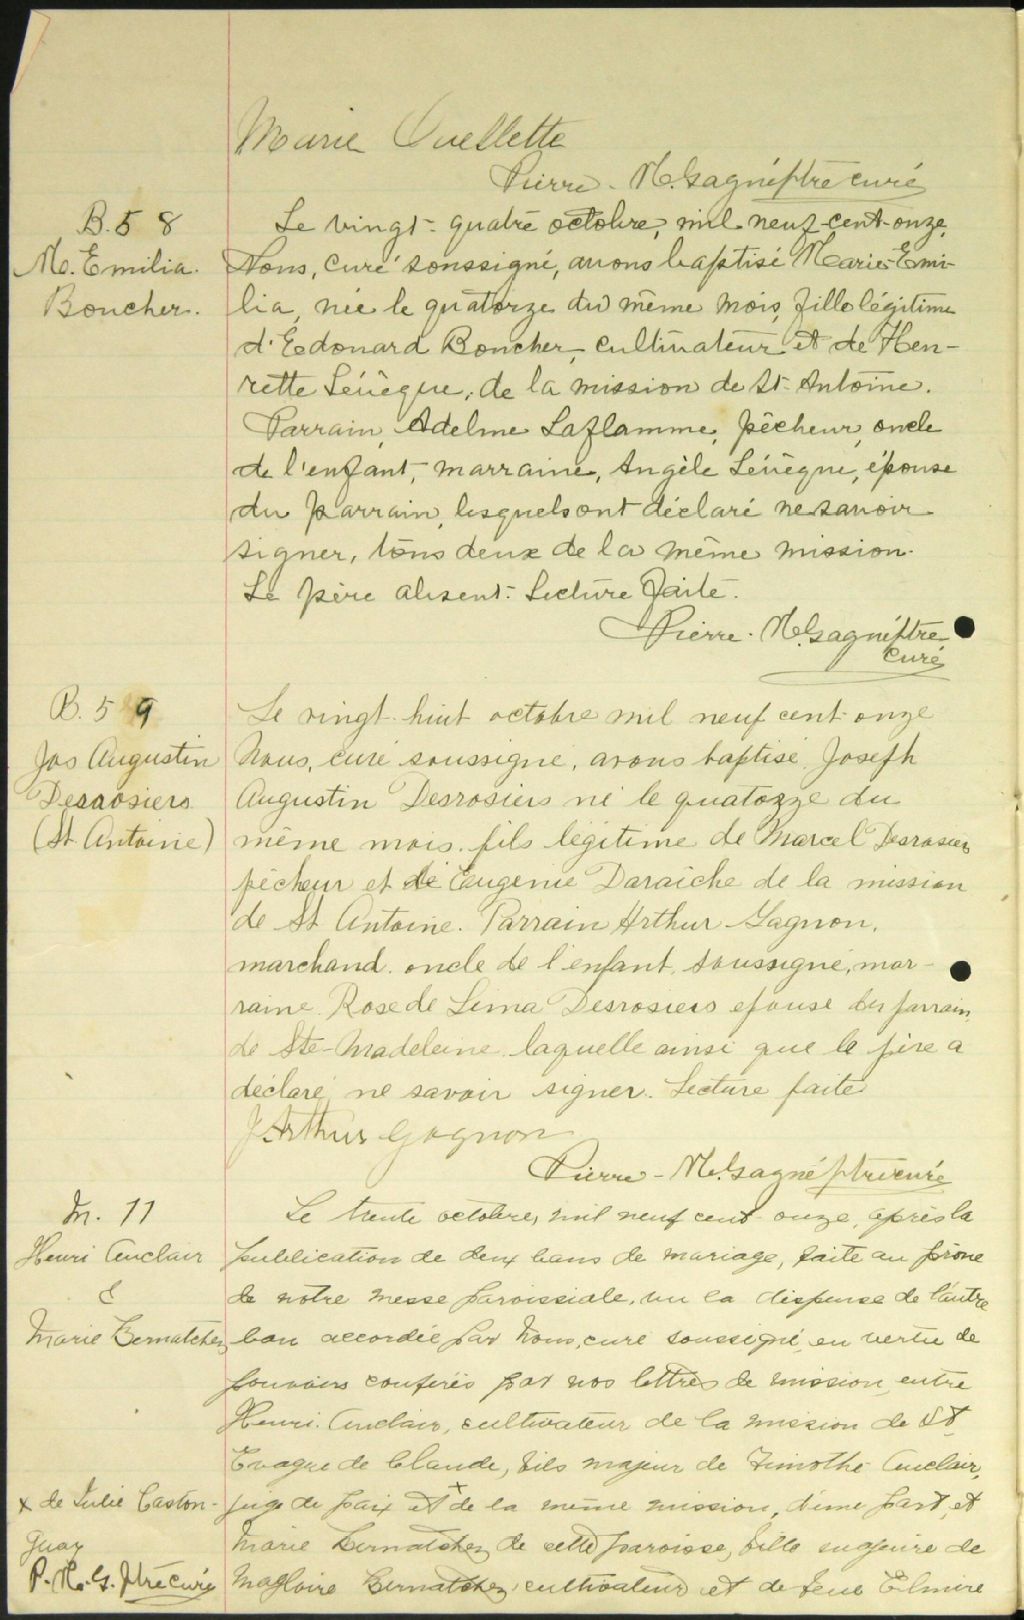 Marie Ouellette
Pierre-M. Gagné ptre curé
B. 58
M. Emilia
Boucher.
Le vingt-quatre octobre, mil neuf-cent-onze,
Nous, curé soussigné, avons baptisé Marie-Emi-
lia, née le quatorze du même mois, fille légitime
d'Edouard Boucher, cultivateur et de Hen-
rette Lévèque, de la mission de St-Antoine.
Parrain, Adelme Laflamme, pêcheur, oncle
de l'enfant, marraine, Angèle Lévèque, épouse
du parrain, lesquels ont déclaré ne savoir
signer, tous deux de la même mission.
Le père absent. Lecture faite.
Pierre-M. Gagné ptre
curé
B. 59
Jos Augustin
Desrosiers
(St Antoine)
Le vingt-huit octobre mil neuf cent-onze
Nous, curé soussigné, avons baptisé Joseph
Augustin Desrosiers né le quatozze du
même mois. fils légitime de Marcel Desrosiers
pêcheur et de Eugenie Daraîche de la mission
de St Antoine. Parrain Arthur Gagnon,
marchand. oncle de l'enfant, soussigné, mar-
raine Rose de Lima Desrosiers epouse du parrain,
de Ste-Madeleine laquelle ainsi que le père a
déclaré ne savoir signer. Lecture faite
J Arthur Gagnon
Pierre-M. Gagné ptre curé
M. 11
Henri Auclair
&
Marie Bernatchez
Le trente octobre, mil neuf cent-onze, après la
publication de deux bans de mariage, faite au prône
de notre messe paroissiale, vu la dispense de l'autre
ban accordée par Nous, curé soussigné, en vertu de
pouvoirs conférés par nos lettres de mission, entre
Henri Auclair, cultivateur de la mission de St
Evagre de Claude, fils majeur de Timothé Auclair,
juge de paix et + de la même mission, d'une part, et
Marie Bernatchez de cette paroisse, fille majeure de
Magloire Bernatchez, cultivateur et de feue Elmire
x de Julie Caston-
guay
P.-M. G. Ptre curé